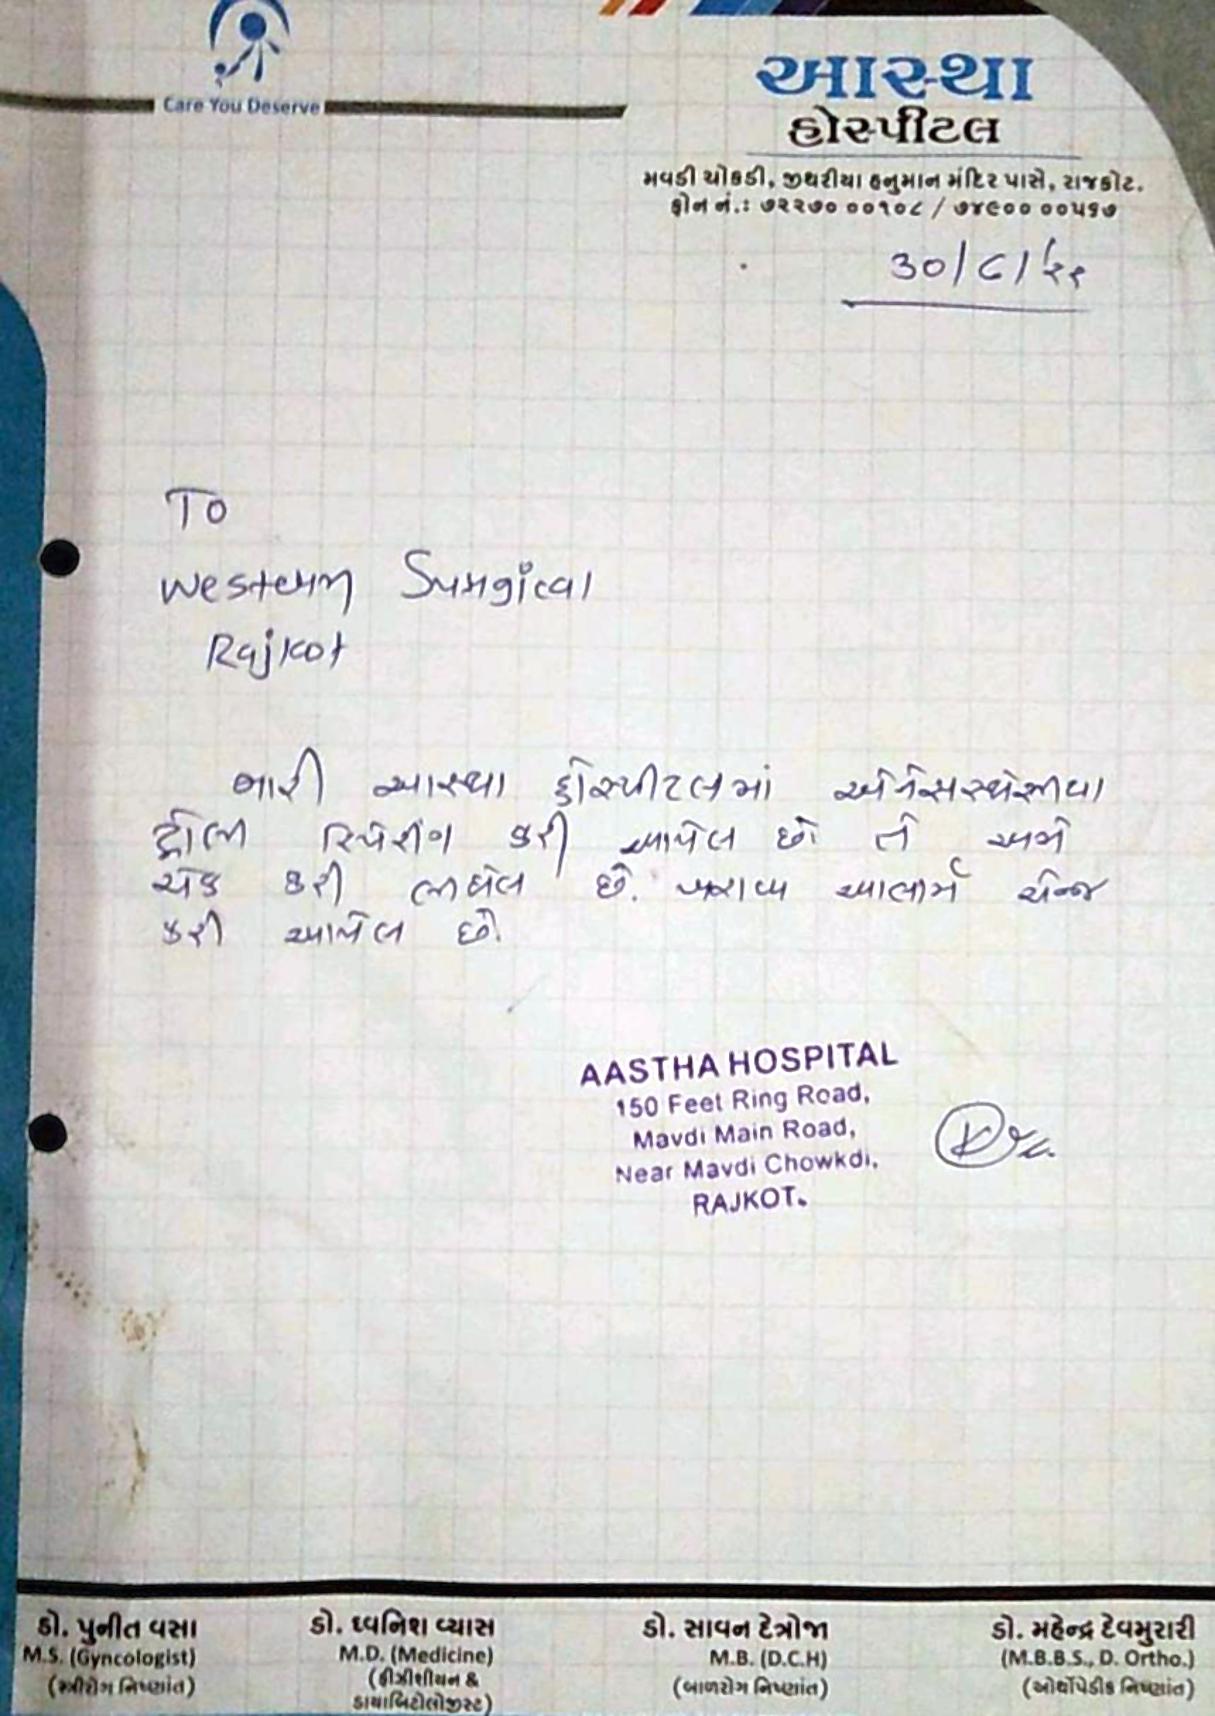 Care You Deserve
આસ્થા
હોસ્પીટલ
મવડી ચોકડી, જીથરીયા હનુમાન મંદિર પાસે, રાજકોટ.
ફોન નં.: ૭૨૨૭૦ ૦૦૧૦૮ / ૭૪૯૦૦ ૦૦૫૬૭
30/૮/૨૧
To
Western Surgical
Rajkot
મારી આસ્થા હોસ્પીટલમાં એનેસ્થેસીયા
ટ્રોલી રિપેરીંગ કરી આપેલ છે તે અમે
ચેક કરી લીધેલ છે. ખરાબ આલાર્મ ચેન્જ
કરી આપેલ છે.
AASTHA HOSPITAL
150 Feet Ring Road,
Mavdi Main Road,
Near Mavdi Chowkdi,
RAJKOT.
ડો. પુનીત વસા
M.S. (Gyncologist)
(સ્ત્રીરોગ નિષ્ણાંત)
ડો. ધ્વનિશ વ્યાસ
M.D. (Medicine)
(ફીઝીશીયન &
ડાયાબિટોલોજીસ્ટ)
ડો. સાવન દેત્રોજા
M.B. (D.C.H)
(બાળરોગ નિષ્ણાંત)
ડો. મહેન્દ્ર દેવમુરારી
(M.B.B.S., D. Ortho.)
(ઓર્થોપેડીક નિષ્ણાંત)